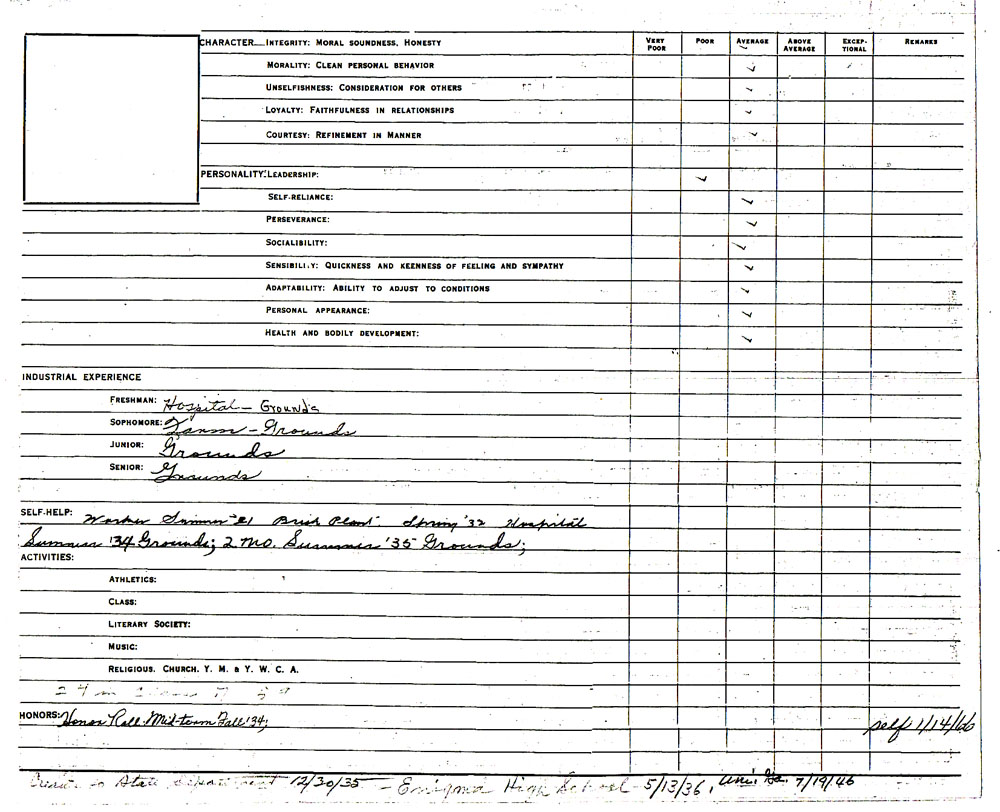 CHARACTER INTEGRITY: MORAL SOUNDNESS, HONESTY VERY POOR POOR AVERAGE ABOVE AVERAGE EXCEP-TIONAL REMARKS
MORALITY: CLEAN PERSONAL BEHAVIOR
UNSELFISHNESS: CONSIDERATION FOR OTHERS
LOYALTY: FAITHFULNESS IN RELATIONSHIPS
COURTESY: REFINEMENT IN MANNER
PERSONALITY: LEADERSHIP:
SELF-RELIANCE:
PERSEVERANCE:
SOCIALIBILITY:
SENSIBILITY: QUICKNESS AND KEENNESS OF FEELING AND SYMPATHY
ADAPTABILITY: ABILITY TO ADJUST TO CONDITIONS
PERSONAL APPEARANCE:
HEALTH AND BODILY DEVELOPMENT:
INDUSTRIAL EXPERIENCE
FRESHMAN: Hospital - Grounds
SOPHOMORE: Farm - Grounds
JUNIOR: Grounds
SENIOR: Grounds
SELF-HELP: Brick Plant. Spring '32 Hospital
Summer '34 Grounds; 2 mo. Summer '35 Grounds;
ACTIVITIES:
ATHLETICS:
CLASS:
LITERARY SOCIETY:
MUSIC:
RELIGIOUS. CHURCH. Y. M. & Y. W. C. A.
HONORS: Honor Roll Mid-term Fall '34; self 1/14/66
State Department 12/30/35 - Enigma High School - 5/13/36, Univ. Ga. 7/19/46